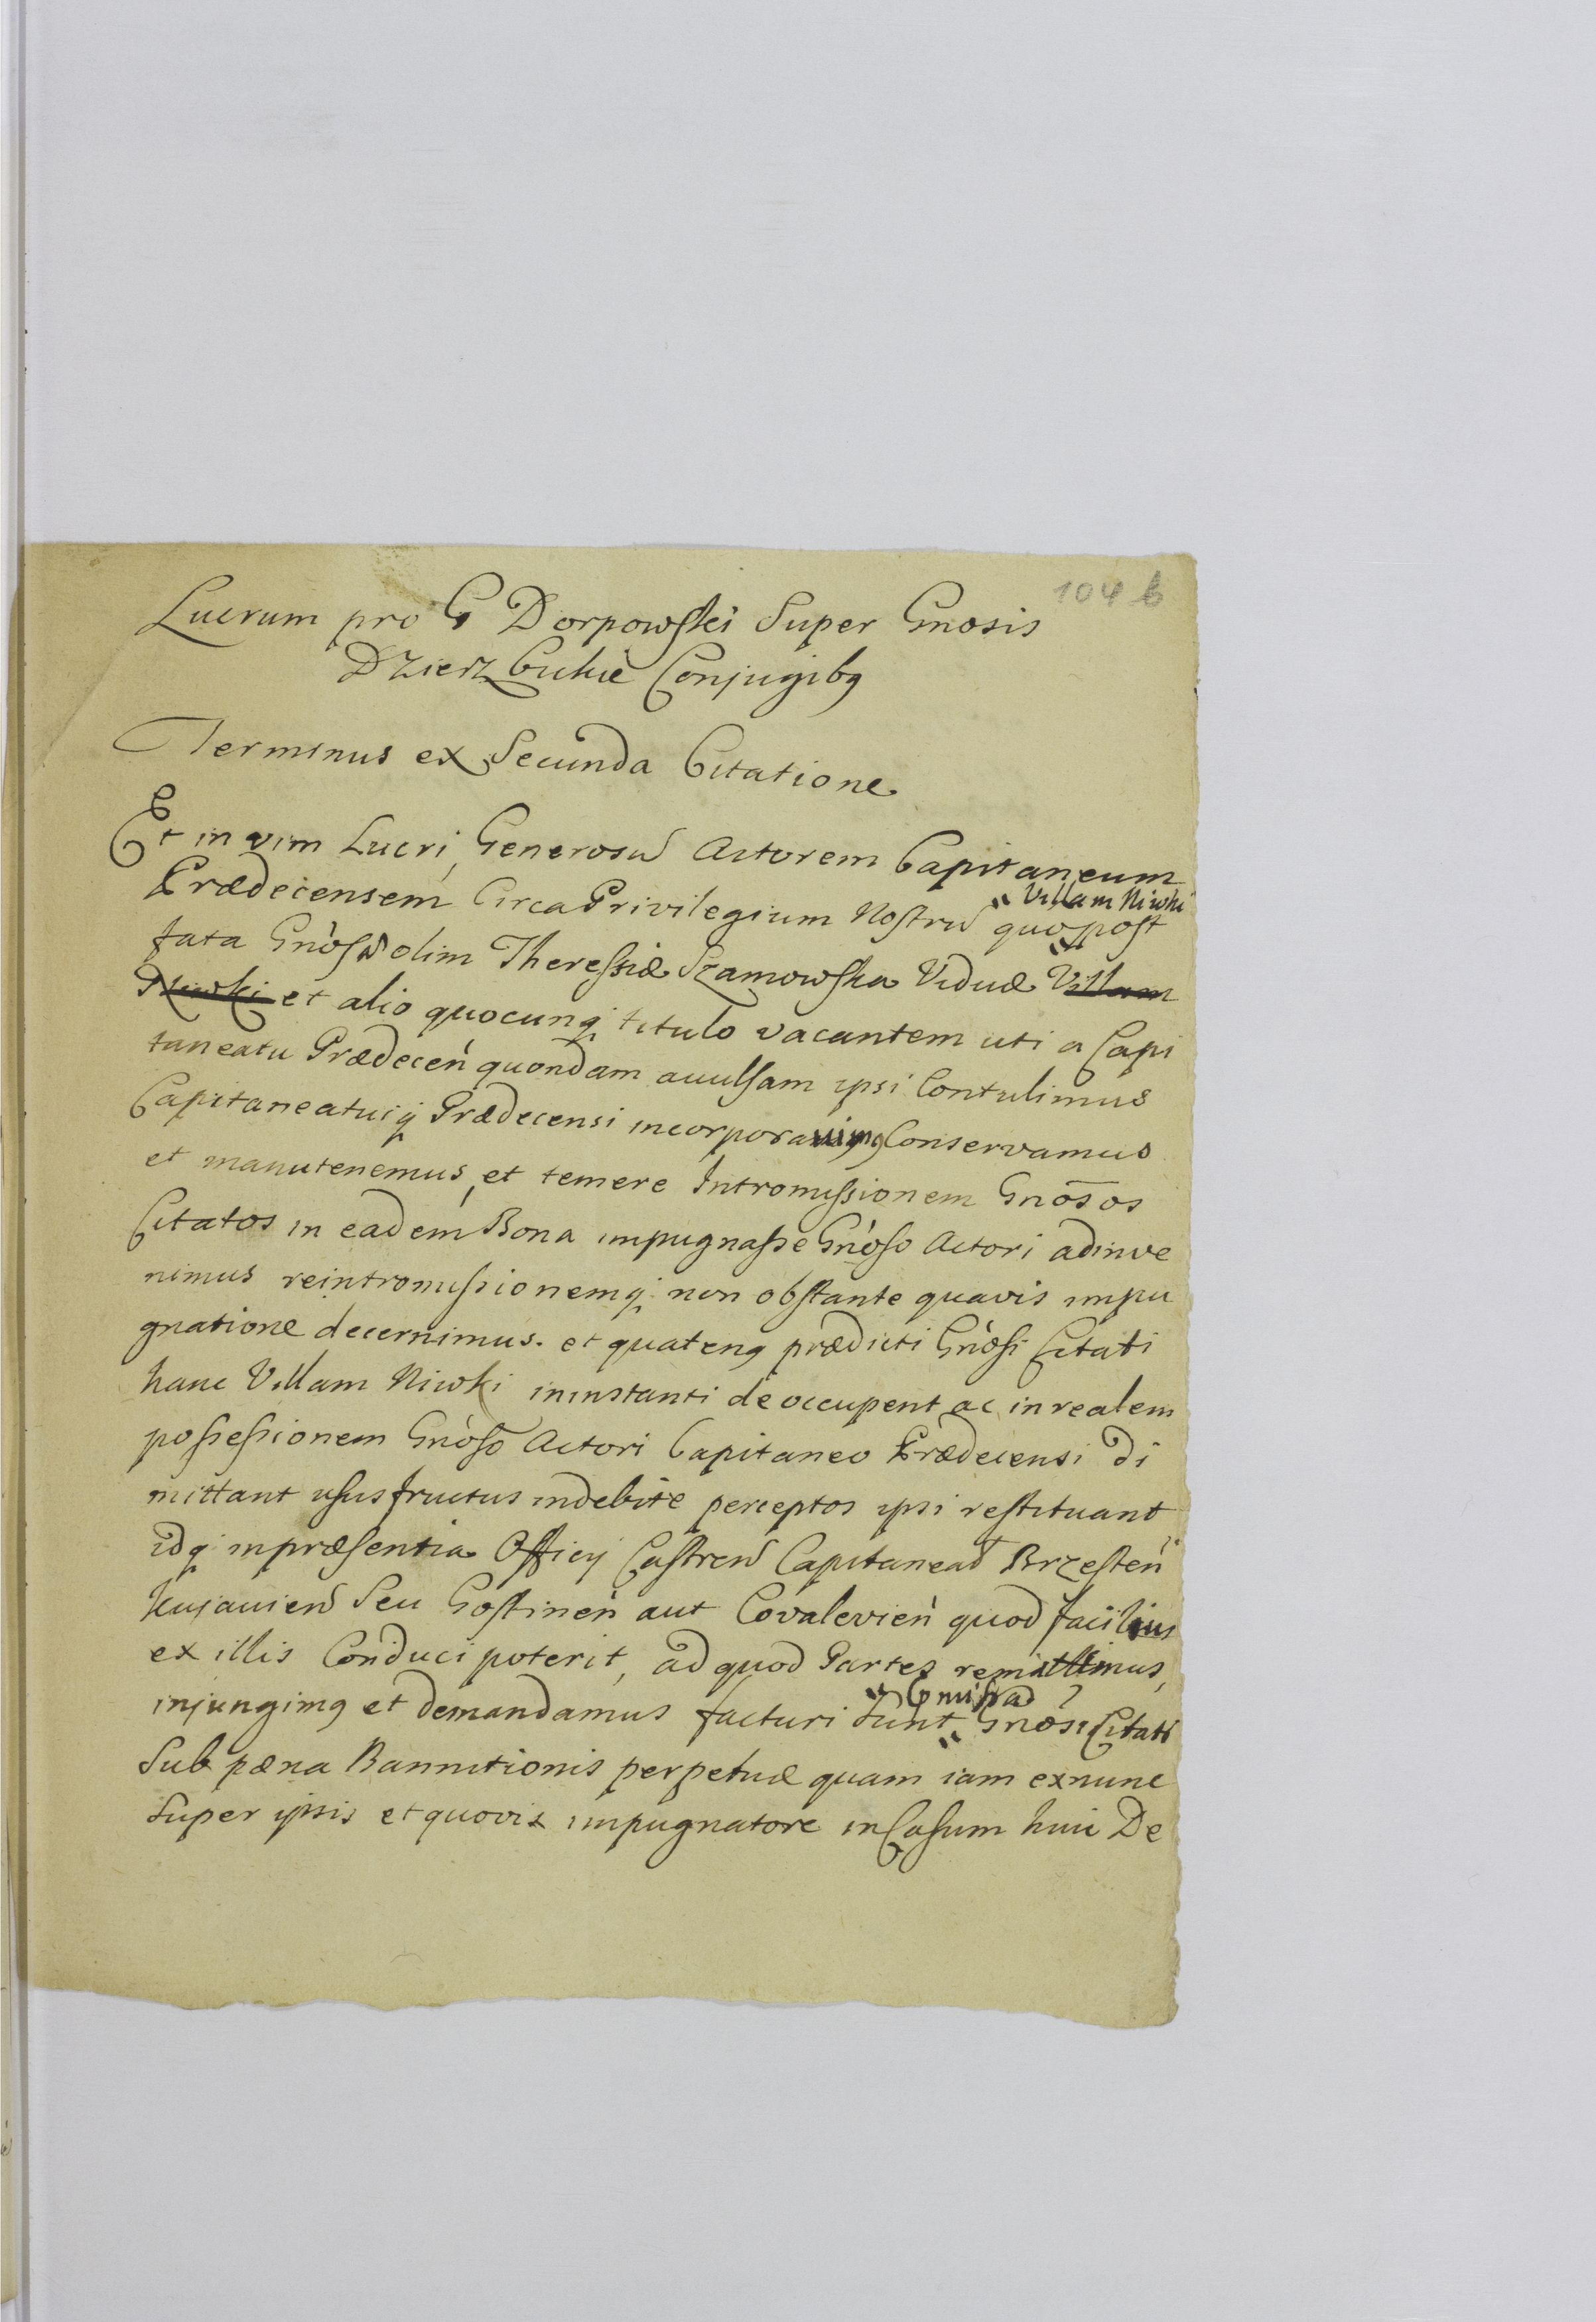 104 b
Lucrum pro G Dorpowski Super Gnosis
Dzierzbickie Conjugibq
Terminus ex Secunda Citatione
Et in vim Lucri, Generosũ Actorem Capitaneum
Prædecensem Circa Privilegium Nostrũ quo post
Villam Niwki
fata Gnosæ olim Theressiæ Szamowska Viduæ Villam
Niwki et alio quocunq titulo vacantem uti a Capi
taneatu Prædeceń quondam avulsam ipsi Contulimus
Capitaneatuiq Prædecensi incorporavimq Conservamus
et manutenemus, et temere Intromissionem Gnõsos
Citatos in eadem Bona impugnasse Gnoso Actori adinve
nimus reintromissionemq non obstante quavis impu
gnatione decernimus. et quatenq prædicti Gnosi Citati
hanc Villam Niwki ininstanti deoccupent ac in realem
possessionem Gnoso Actori Capitaneo Prædecensi di
mittant usus fructus indebite perceptos ipsi restituant
idq inpræsentia Officij Castreń Capitaneat Brzesteń
Kujavień Seu Gostineń aut Covalevień quod facilius
ex illis Conduci poterit, ad quod Partes remittimus,
injungimq et demandamus facturi sunt Gnosi Citati
Sub pæna Bannitionis perpetuæ quam iam exnunc
super ipsis et quovis impugnatore in Casum huic De